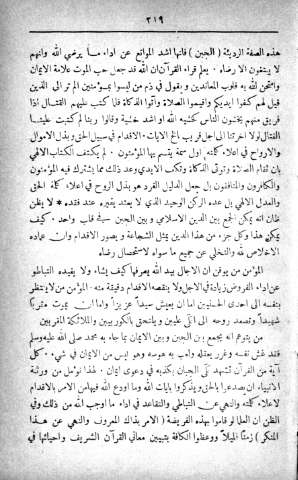 ٣١٩
هذه الصفة الرديئة (الجبن) فانها اشد الموانع عن اداء ما يرضي الله وانهم
لا يبتغون الا رضاه. يعلم قراء القرآن ان الله قد جعل حب الموت علامة الايمان
وامتحن الله به قلوب المعاندين ويقول في ذم من ليسوا بمؤمنين الم تر الى الذين
قيل لهم كفوا ايديكم واقيموا الصلاة وآتوا الزكاة فلما كتب عليهم القتال اذا
فريق منهم يخشون الناس كخشية الله او اشد خشية وقالوا ربنا لم كتبت علينا
القتال لولا اخرتنا الى اجل قريب الخ الايات. الاقدام في سبيل الحق وبذل الاموال
والارواح في اعلاء كلمته اول سمة يتسم بها المؤمنون. لم يكتف الكتاب الالهي
بان تقام الصلاة وتؤتى الزكاة وتكف الايدي وعد ذلك مما يشترك فيه المؤمنون
والكافرون والمنافقون بل جعل الدليل الفرد هو بذل الروح في اعلاء كلمة الحق
والعدل الالهي بل عده الركن الوحيد الذي لا يعتد بغيره عند فقده * لا يظن
ظان انه يمكن الجمع بين الدين الاسلامي و بين الجبن في قلب واحد. كيف
يمكن هذا وكل جزء من هذا الدين يمثل الشجاعة و يصور الاقدام وان عماده
الاخلاص لله والتخلي عن جميع ما سواه لاستحصال رضاه
المؤمن من يوقن ان الاجال بيد الله يصرفها كيف يشاء ولا يفيده التباطؤ
عن اداء الفروض زيادة في الاجل ولا ينقصه الاقدام دقيقة منه. المؤمن من لا ينتظر
بنفسه الا احدى الحسنيين اما ان يعيش سيداً عزيزاً واما ان يموت مقرباً
شهيداً وتصعد روحه الى اعلى عليين و يلتحق بالكروبيين والملائكة المقربين
من يتوهم انه يجمع بين الجبن وبين الايمان بما جاء به محمد صلى الله عليه وسلم
فقد غش نفسه وغرر بعقله ولعب به هوسه وهو ليس من الايمان في شيء. كل
آية من القرآن تشهد على الجبان بكذبه في دعوى ايمان. لهذا نؤمل من ورثة
الانبياء ان يصدعوا بالحق و يذكروا بايات الله وما اودع الله فيها من الامر بالاقدام
لاعلاء كلمته والنهي عن التباطي والتقاعد في اداء ما اوجب الله من ذلك وفي
الظن ان العلماء لو قاموا بهذه الفريضة (الامر بذاك المعروف والنهي عن هذا
المنكر) زمناً قليلاً ووعظوا الكافة بتبيين معاني القرآن الشريف واحيائها في